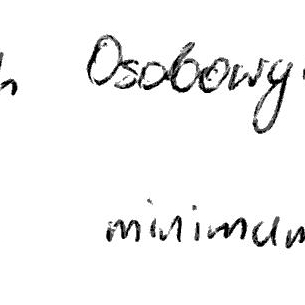 Osobowy
minimum